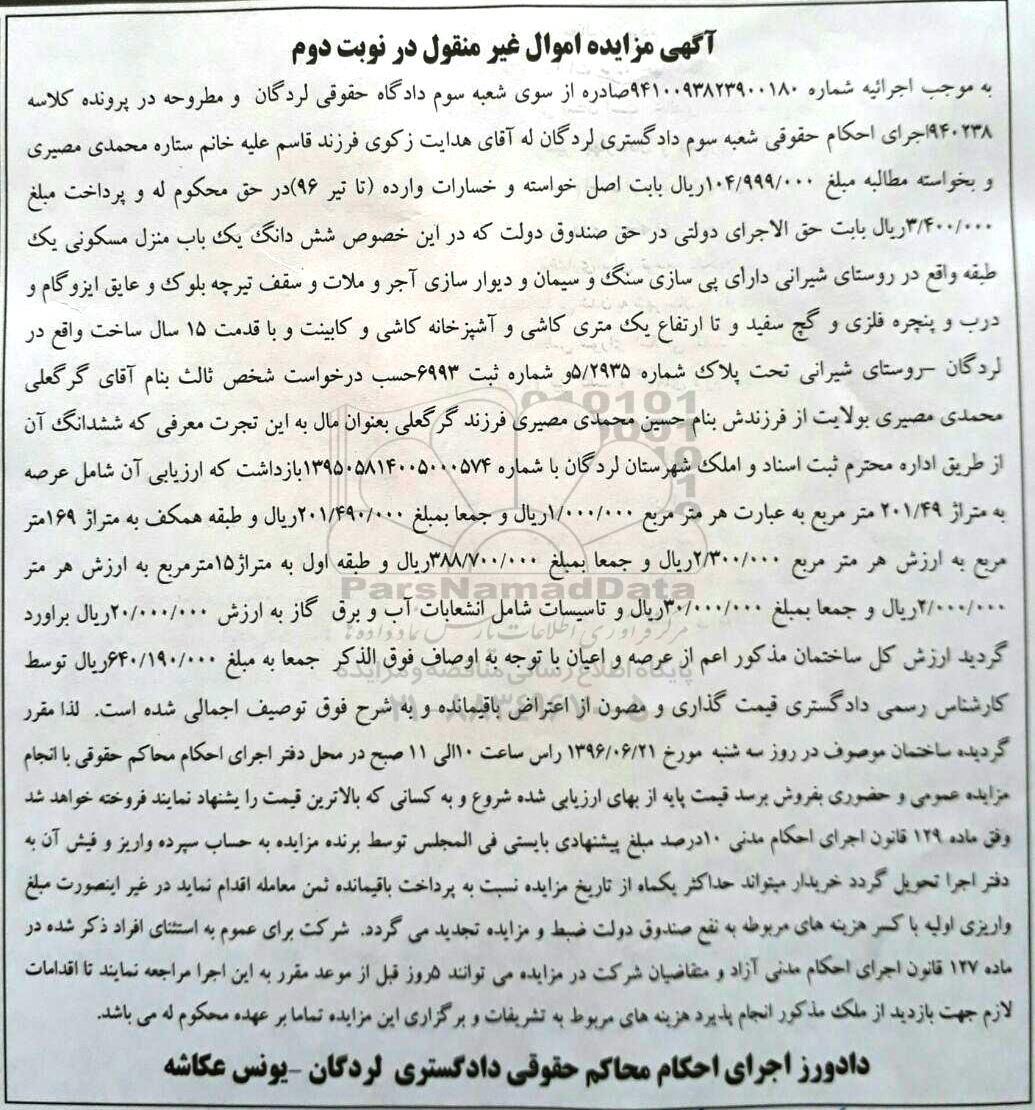 آگهی مزایده اموال غیر منقول در نوبت دوم
به موجب اجرائیه شماره ۹۴۱۰۰۹۳۸۲۳۹۰۰۱۸۰صادره از سوی شعبه سوم دادگاه حقوقی لردگان و مطروحه در پرونده کلاسه
۹۴۰۲۳۸اجرای احکام حقوقی شعبه سوم دادگستری لردگان له آقای هدایت زکوی فرزند قاسم علیه خانم ستاره محمدی مصیری
و بخواسته مطالبه مبلغ ۱۰۴/۹۹۹/۰۰۰ریال بابت اصل خواسته و خسارات وارده (تا تیر ۹۶)در حق محکوم له و پرداخت مبلغ
۳/۴۰۰/۰۰۰ریال بابت حق الاجرای دولتی در حق صندوق دولت که در این خصوص شش دانگ یک باب منزل مسکونی یک
طبقه واقع در روستای شیرانی دارای پی سازی سنگ و سیمان و دیوار سازی آجر و ملات و سقف تیرچه بلوک و عایق ایزوگام و
درب و پنچره فلزی و گچ سفید و تا ارتفاع یک متری کاشی و آشپزخانه کاشی و کابینت و با قدمت ۱۵ سال ساخت واقع در
لردگان –روستای شیرانی تحت پلاک شماره ۵/۲۹۳۵و شماره ثبت ۶۹۹۳حسب درخواست شخص ثالث بنام آقای گرگعلی
محمدی مصیری بولایت از فرزندش بنام حسین محمدی مصیری فرزند گرگعلی بعنوان مال به این تجرت معرفی که ششدانگ آن
از طریق اداره محترم ثبت اسناد و املک شهرستان لردگان با شماره ۱۳۹۵۰۵۸۱۴۰۰۵۰۰۰۵۷۴بازداشت که ارزیابی آن شامل عرصه
به متراژ ۲۰۱/۴۹ متر مربع به عبارت هر متر مربع ۱/۰۰۰/۰۰۰ریال و جمعا بمبلغ ۲۰۱/۴۹۰/۰۰۰ریال و طبقه همکف به متراژ ۱۶۹متر
مربع به ارزش هر متر مربع ۲/۳۰۰/۰۰۰ریال و جمعا بمبلغ ۳۸۸/۷۰۰/۰۰۰ریال و طبقه اول به متراژ۱۵مترمربع به ارزش هر متر
۲/۰۰۰/۰۰۰ریال و جمعا بمبلغ ۳۰/۰۰۰/۰۰۰ریال و تاسیسات شامل انشعابات آب و برق گاز به ارزش ۲۰/۰۰۰/۰۰۰ریال براورد
گردید ارزش کل ساختمان مذکور اعم از عرصه و اعیان با توجه به اوصاف فوق الذکر جمعا به مبلغ ۶۴۰/۱۹۰/۰۰۰ریال توسط
کارشناس رسمی دادگستری قیمت گذاری و مصون از اعتراض باقیمانده و به شرح فوق توصیف اجمالی شده است. لذا مقرر
گردیده ساختمان موصوف در روز سه شنبه مورخ ۱۳۹۶/۰۶/۲۱ راس ساعت ۱۰الی ۱۱ صبح در محل دفتر اجرای احکام محاکم حقوقی با انجام
مزایده عمومی و حضوری بفروش برسد قیمت پایه از بهای ارزیابی شده شروع و به کسانی که بالاترین قیمت را پشنهاد نمایند فروخته خواهد شد
وفق ماده ۱۲۹ قانون اجرای احکام مدنی ۱۰درصد مبلغ پیشنهادی بایستی فی المجلس توسط برنده مزایده به حساب سپرده واریز و فیش آن به
دفتر اجرا تحویل گردد خریدار میتواند حداکثر یکماه از تاریخ مزایده نسبت به پرداخت باقیمانده ثمن معامله اقدام نماید در غیر اینصورت مبلغ
واریزی اولیه با کسر هزینه های مربوطه به نفع صندوق دولت ضبط و مزایده تجدید می گردد. شرکت برای عموم به استثنای افراد ذکر شده در
ماده ۱۲۷ قانون اجرای احکام مدنی آزاد و متقاضیان شرکت در مزایده می توانند ۵روز قبل از موعد مقرر به این اجرا مراجعه نمایند تا اقدامات
لازم جهت بازدید از ملک مذکور انجام پذیرد هزینه های مربوط به تشریفات و برگزاری این مزایده تماما بر عهده محکوم له می باشد.
دادورز اجرای احکام محاکم حقوقی دادگستری لردگان –یونس عکاشه
ParsNamadData
مرکز فرآوری اطلاعات پارس نماد داده ها
پایگاه اطلاع رسانی مناقصه و مزایده